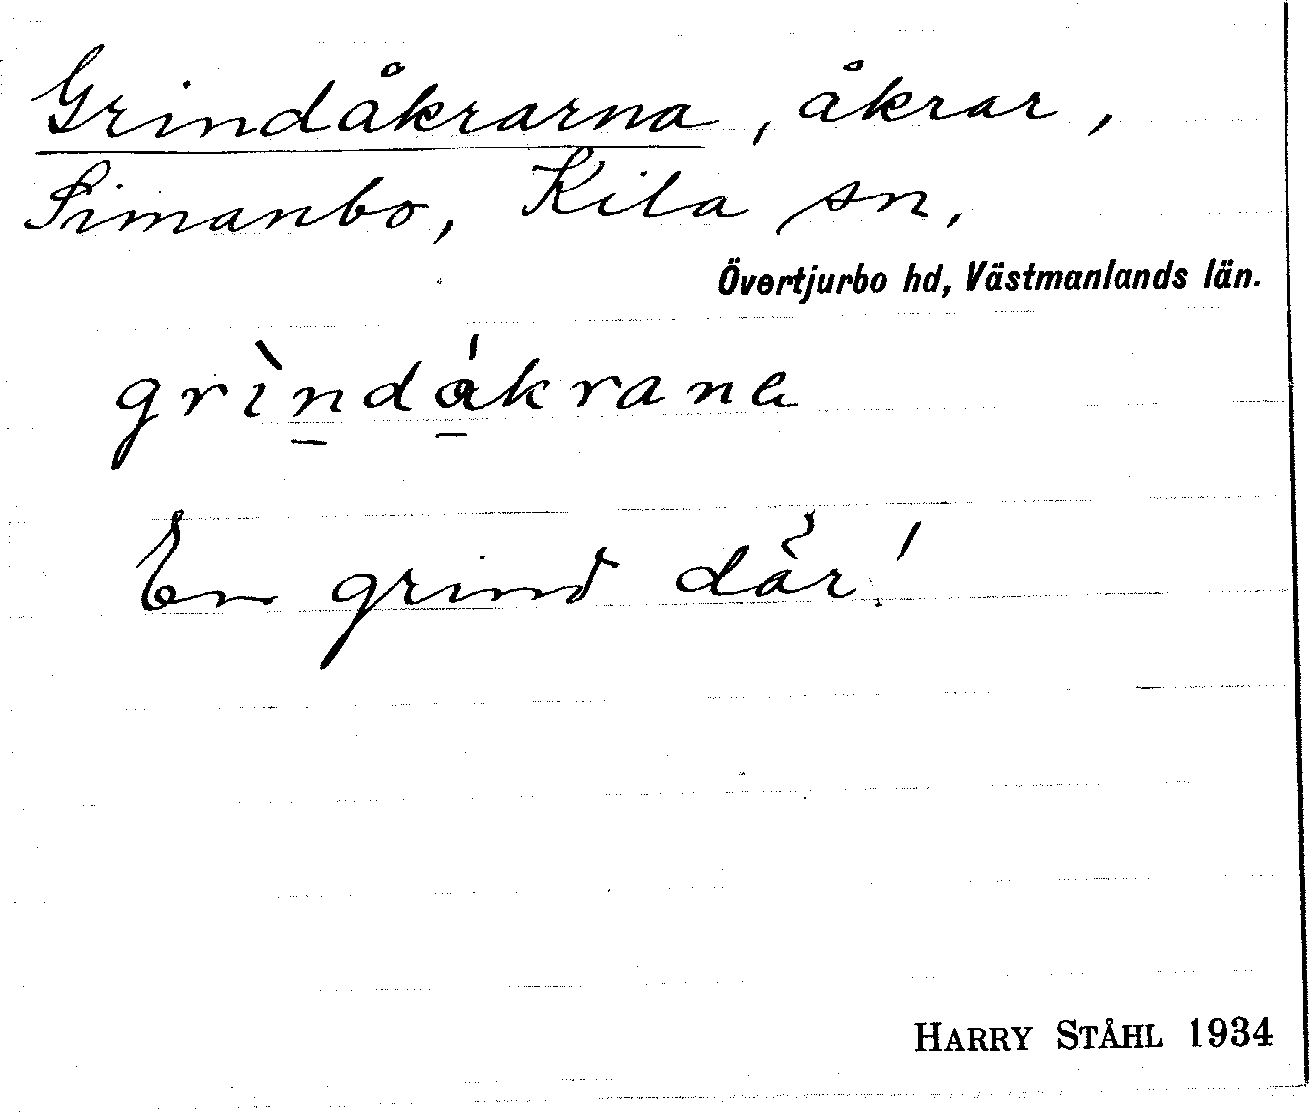 Grindåkrarna, åkrar,
Simanbo, Kila sn,
Övertjurbo hd, Västmanlands län.
grìndákrana
En grind där!
HARRY STÅHL 1934